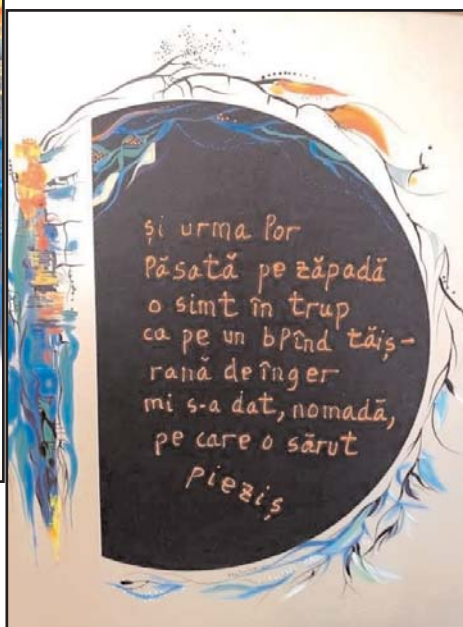 și urma lor
lăsată pe zăpadă
o simt în trup
ca pe un blînd tăiș-
rană de înger
mi s-a dat, nomadă,
pe care o sărut
pieziș